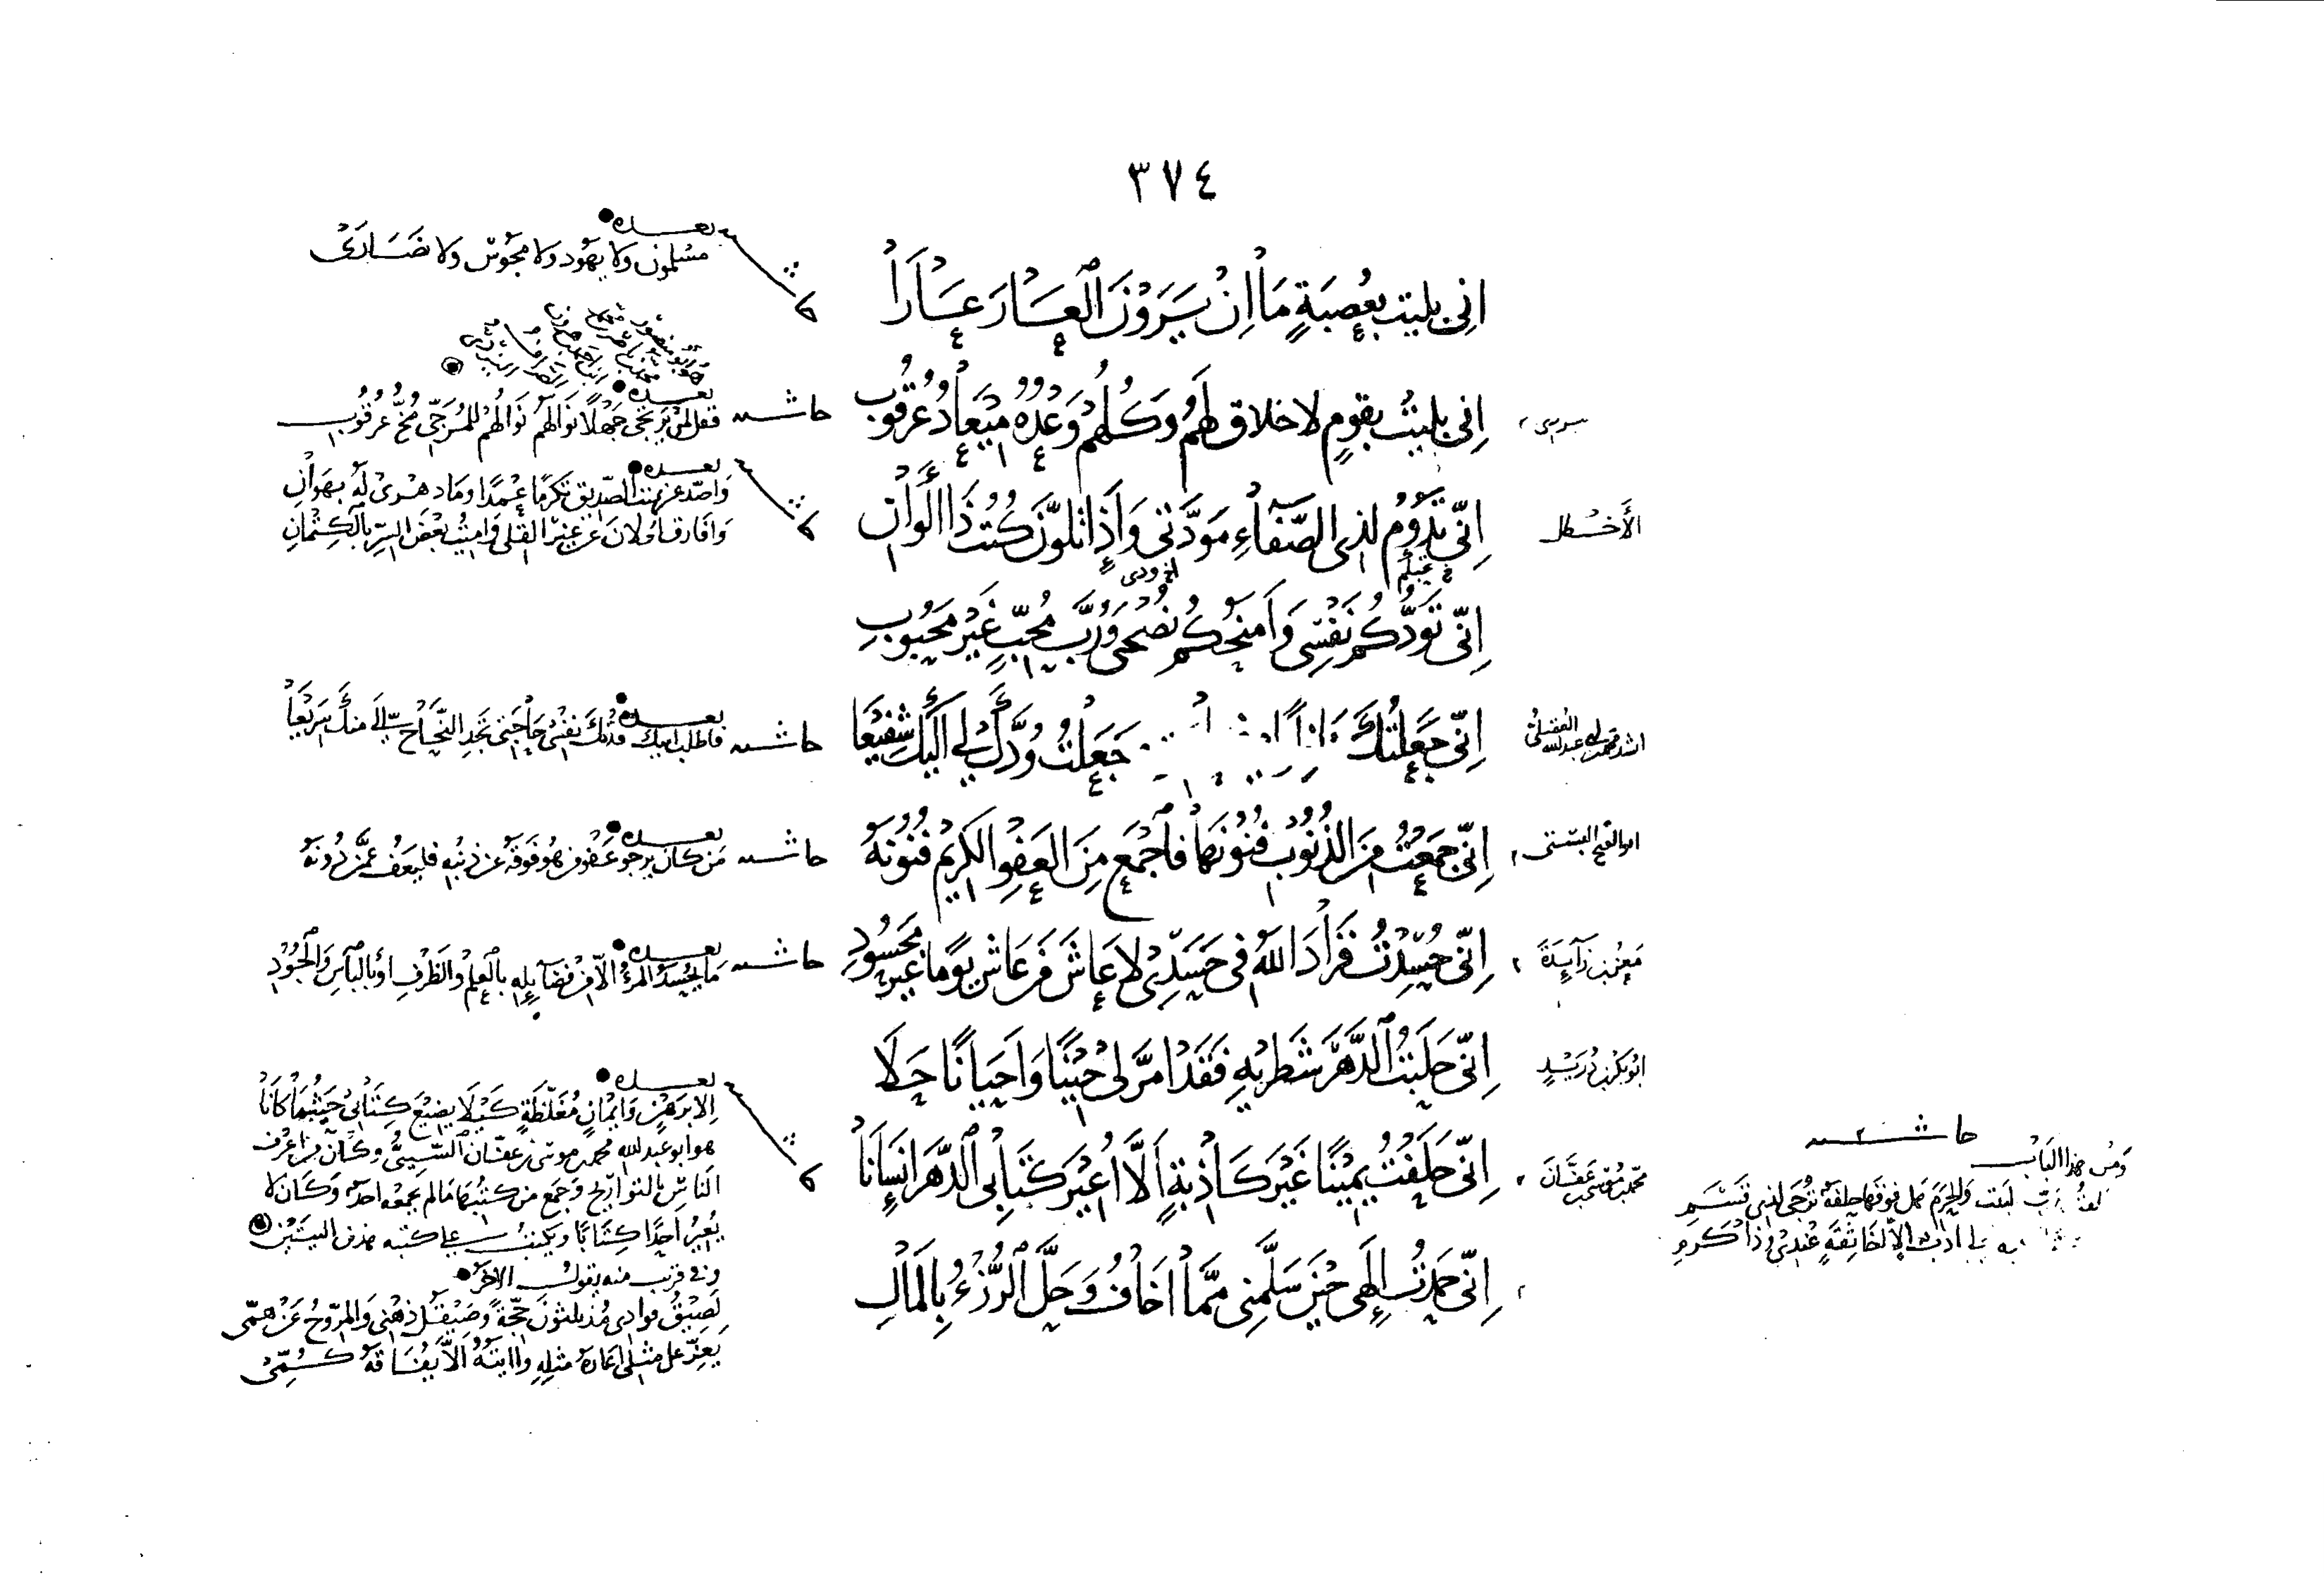 ٣٧٤
اِنِّي بليتُ بعُصبَةٍ مَا اِنْ يَرَوْنَ العَارَ عَارَا
بعده
مسلمون ولا يهود ولا مجوس ولا نصَارَى
اِنِّي بليتُ بقومٍ لا خلاق لهُم وَكُلّهُم وَعْدُهُ مِيْعَادُ عُرقُوب
حاشية
بعده
فقل لمن يرتجى جَهْلًا نوالهم نَوَالُهُم للمُرَجّى مُخُّ عُرقُوب
الأخطل
اِنِّي تَدُوْمُ لذى الصَّفَاءِ مَوَدَّتي وَاذا تلوَّنَ كُنتُ ذَا الوَانِ
بعده
وَاصدّ عن الصّديق تكرمًا عَمدًا وما دهرى له بهَوَانِ
وَافارق الخلان عن غير القلى وَاميتُ بعضَ السِّرِ بالكِتْمَانِ
اِنِّي تَوَدُّكُم نَفْسِي وَاَمنحُكُم نُصحى وَرُبَّ مُحِبٍّ غَيْر مَحبُوبِ
محمد بن عبد الله
اِنِّي جَعَلتُكَ
جَعَلتُ وُدَّكَ لي اليكَ شفيعَا
حاشية
بعده
فاطلب اليك فدتك نفسي حَاجتي تجد النَّجَاح اليّ منكَ سَرِيعَا
ابو الفتح البستى
اِنِّي جَمَعتُ من الذنُوْب فُنُونَهَا فاَجْمَع مِنَ العَفْوِ الكَرِيْم فُنُونَه
حاشية
بعده
مَن كان يرجو عَفو من هُو فوقه عن ذنبه فليعَف عمَّن دُونَه
مَعْن بن زَآيدَة
اِنِّي حُسِدْتُ فَزَادَ اللهُ في حَسَدِى لا عَاشَ مَن عَاشَ يومًا غير مَحْسُودِ
حاشية
بعده
مَا يُحسَدُ المرْءُ الّا من فضآيله بالعِلم والظَرْفِ او بالبأسِ وَالجُوْدِ
ابُو بَكر بن دُرَيْدٍ
اِنِّي حَلَبتُ الدَّهْرَ شَطْرَيْهِ فَقَدْ امَرَّ لى حِيْنًا وَاَحيَانًا حَلا
محمد بن موسى بن عَفَّانَ
اِنِّي حَلَفْتُ يَمِيْنًا غَيْرَ كَاذِبةٍ اَلَّا اُعِيْرَ كتَابي الدَّهْرَ انسَانَا
بعده
الا برَهْنٍ وَايْمَانٍ مُغَلّظَةٍ كَيْلا يضيْعَ كِتَابي حَيْثُمَا كَانَا
هو ابو عبد الله محمد بن موسى بن عفّان السّبتىُّ وكانَ من اعرف
النَاسِ بالتواريخ وَجمَع من كتبها ما لم يجمعه احد وَكَان لا
يُعِيْرُ احَدًا كِتَابًا ويكتبُ على كتبه هذين البيتَيْن
وفى قريب منه يقول الآخر
لَصيْقُ فوادى مُذ ثلثونَ حجّةً وَصَيْقَلُ ذهْني وَالمروّحُ عَنْ همّى
يَعِزّ على مثلى اعَارة مثلِهِ
اِنِّي حَمِدْتُ الهَي حيْنَ سَلَّمنى مِمَّا اَخَافُ وَحَلَّ الرُّزْءُ بالمَالِ
حاشية
وَمن هذا البَاب
وَالحرَم هل فوقها حلفةٌ تُرجَى لذى قَسَمِ
عندى وَذا كَرمِ